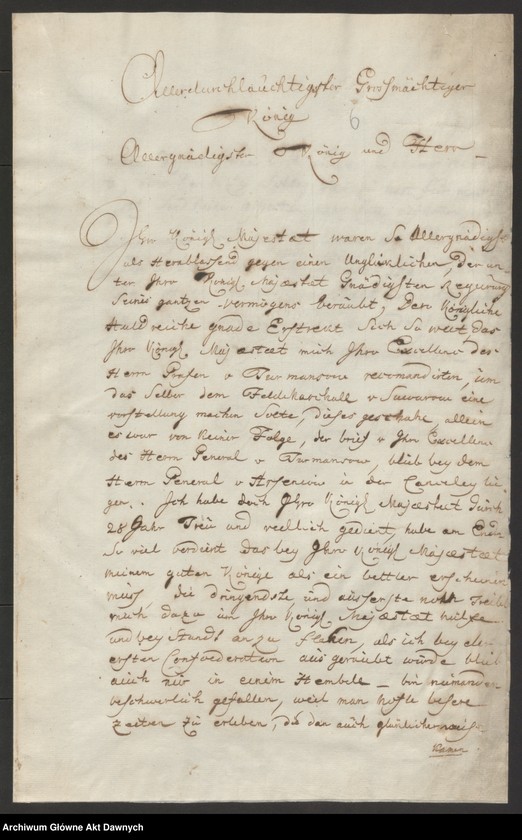 Allerdurchlauchtigster Grosmächtiger
König
6
Allergnädigster König und Herr
Ihro Königl Majestæt waren so Allergnädigst
als Herablessend gegen einen Unglücklichen, der un
ter Ihro Königl Majestæt Gnädigsten Regierung
Seines gantzen vermögens beräubt, Dero Königliche
Huldreiche gnade Erstrekt Sich So weit das
Ihro Königl Majestæt mich Ihro Excellenc des
Herrn v recomandirten, um
das Selber dem Feldmarschall v Suwarow eine
vorstellung machen Solte, dieses geschahe, allein
es war von Keiner Folge, der brief v Ihro Excellenc
des Herrn General v blieb bey dem
Herrn General v Arseniew in der Canceley lie
gen. Ich habe doch Ihro Königl Majestæt durch
28 Jahr Treu und redlich gedient, habe am Ende
So viel verdient das bey Ihro Königl Majestæt
meinem guten Könige als ein bettler erscheinen
muss, die dringendste und äusserste noth Treibt
mich dazu um Ihro Königl Majestæt hülfe
und bey Standt an zu flehen, als ich bey der
ersten Confoederation aus geraubt wurde blieb
auch nur in einem Hembde - bin niemanden
beschwerlich gefallen, weil man hofte besere
zeiten zu erleben, die dan auch
Archiwum Główne Akt Dawnych